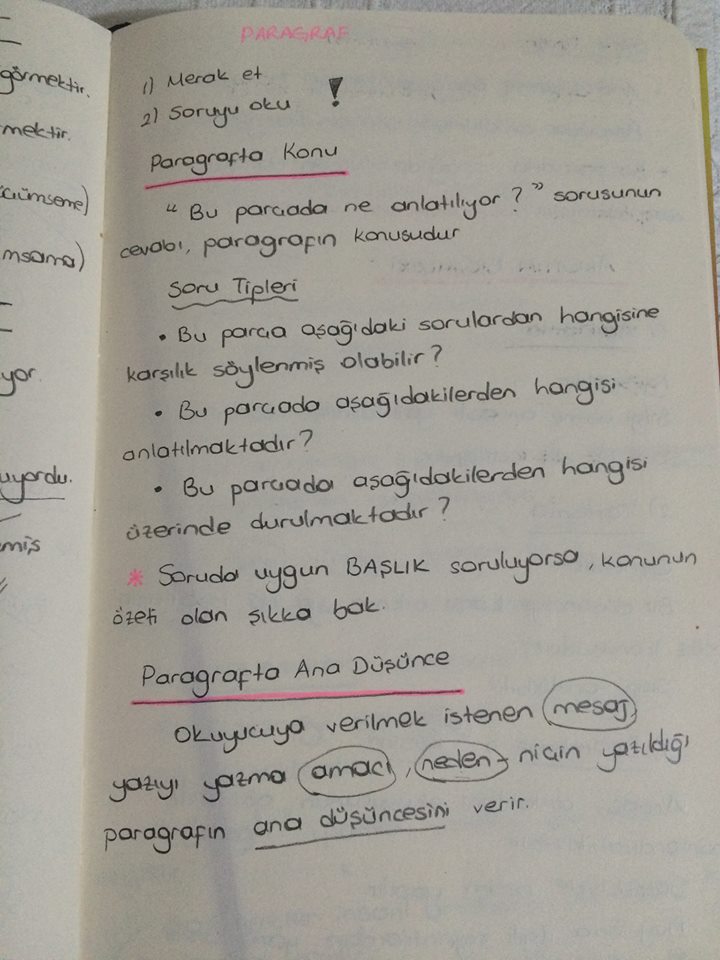 görmektir.
mektir.
msama)
yor.
uyordu.
miş
PARAGRAF
1) Merak et
2) Soruyu oku !
Paragrafta Konu
" Bu parçada ne anlatılıyor ? " sorusunun
cevabı, paragrafın konusudur
Soru Tipleri
• Bu parça aşağıdaki sorulardan hangisine
karşılık söylenmiş olabilir ?
• Bu parçada aşağıdakilerden hangisi
anlatılmaktadır ?
• Bu parçada aşağıdakilerden hangisi
üzerinde durulmaktadır ?
* Soruda uygun BAŞLIK soruluyorsa, konunun
özeti olan şıkka bak.
Paragrafta Ana Düşünce
Okuyucuya verilmek istenen mesaj
yazıyı yazma amacı, neden - niçin yazıldığı
paragrafın ana düşüncesini verir.